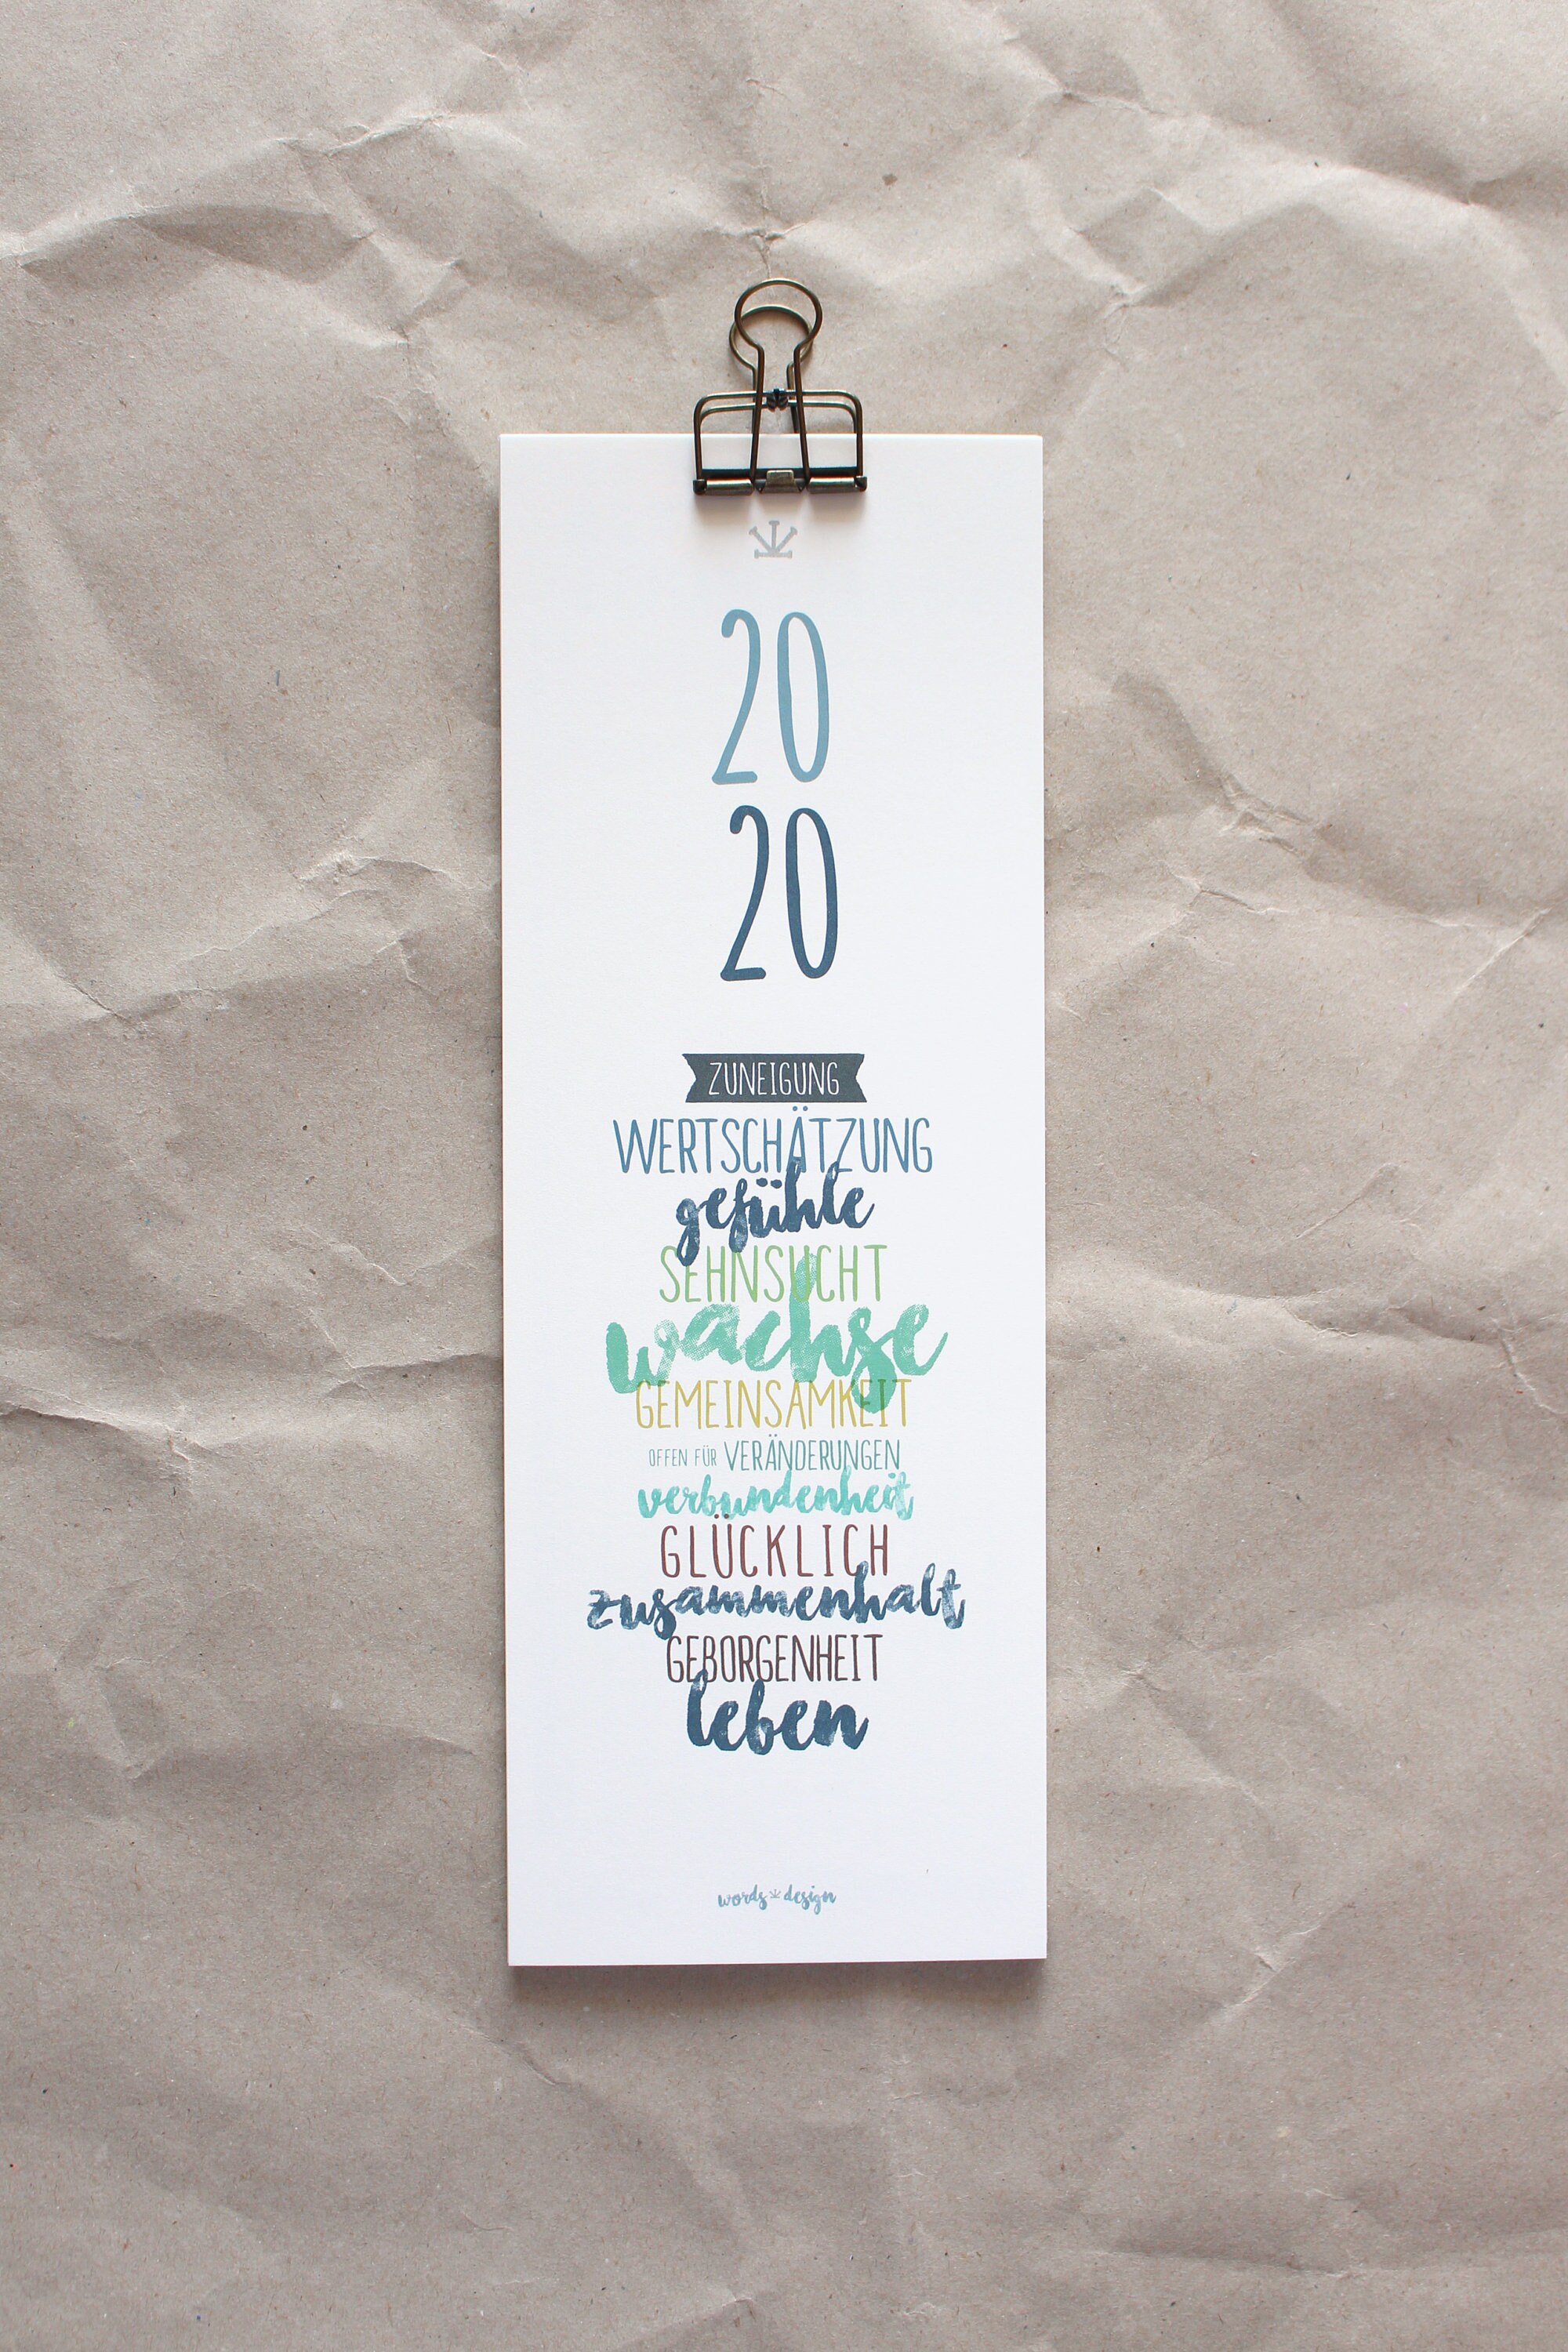 20
20
ZUNEIGUNG
WERTSCHÄTZUNG
gefühle
SEHNSUCHT
wachse
GEMEINSAMKEIT
OFFEN FÜR VERÄNDERUNGEN
verbundenheit
GLÜCKLICH
zusammenhalt
GEBORGENHEIT
leben
words design